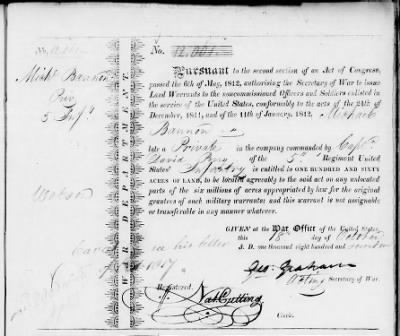 No. 12,001
Mich^l Bannon
Priv
5 Inf^y
WAR DEPARTMENT.
Pursuant to the second section of an Act of Congress,
passed the 6th of May, 1812, authorising the Secretary of War to issue
Land Warrants to the noncommissioned Officers and Soldiers enlisted in
the service of the United States, conformably to the acts of the 24th of
December, 1811, and of the 11th of January, 1812, Michael
Bannon
late a Private in the company commanded by Capt^n
David of the 5th Regiment United
States' Infantry is entitled to ONE HUNDRED AND SIXTY
ACRES OF LAND, to be located agreeably to the said act on any unlocated
parts of the six millions of acres appropriated by law for the original
grantees of such military warrants; and this warrant is not assignable
or transferable in any manner whatever.
GIVEN at the War Office of the United States,
this 18th day of October
A. D. one thousand eight hundred and seventeen
his letter
1817
Geo: Graham
Acting Secretary of War.
Registered.
Nat Cutting
Clerk.